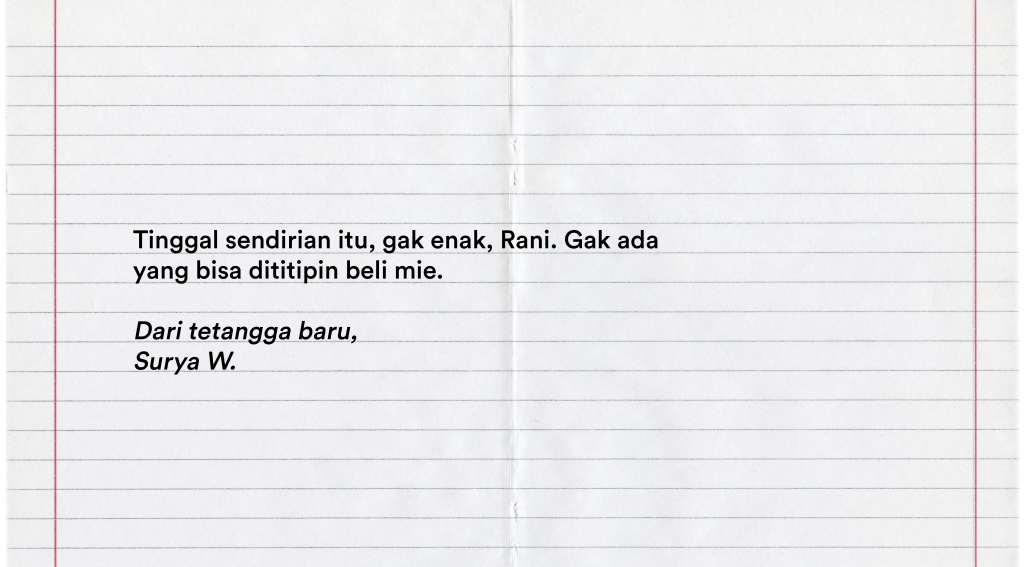 Tinggal sendirian itu, gak enak, Rani. Gak ada
yang bisa dititipin beli mie.
Dari tetangga baru,
Surya W.